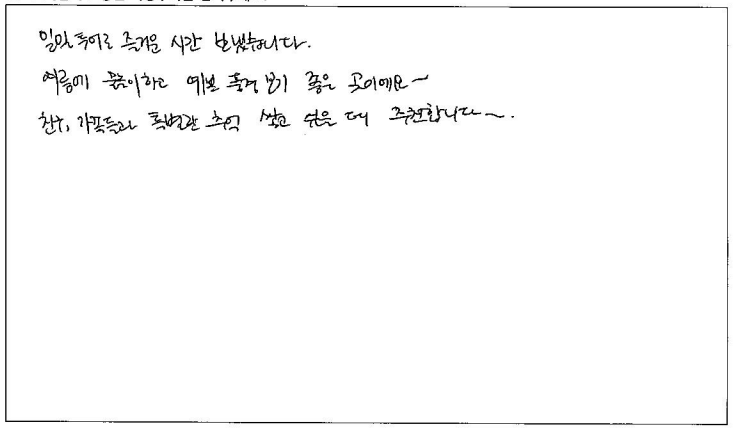 일일투어로 즐거운 시간 보냈습니다.
여름에 물놀이하고 예쁜 풍경 보기 좋은 곳이에요~
친구, 가족들과 특별한 추억 쌓고 싶을 때 추천합니다~.